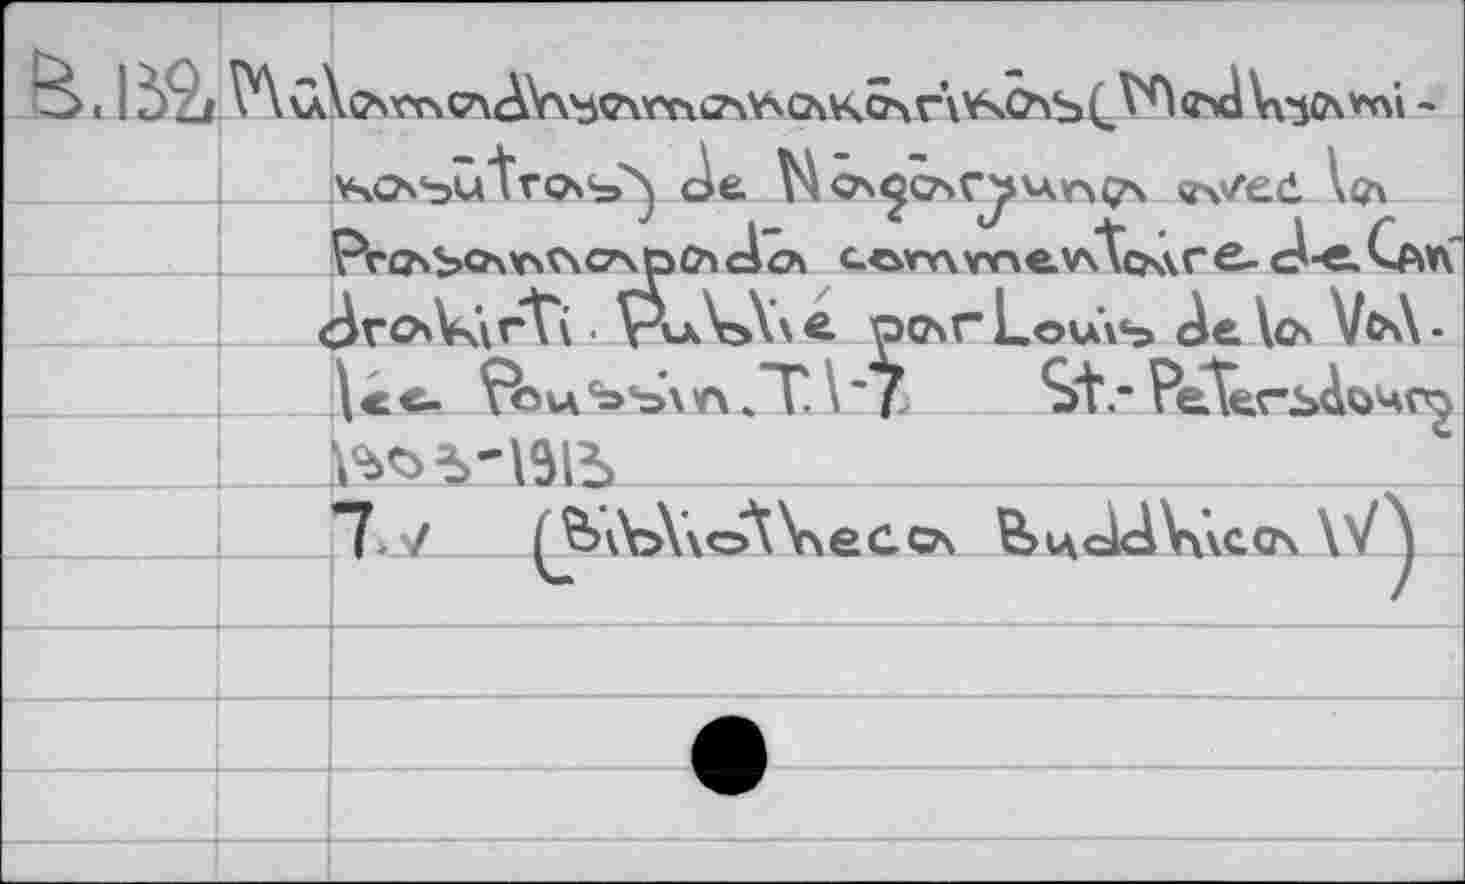 B.1392, Mūlamadhyamakakārikās (Mādhyami-
kasūtras) de Nāgārjuna avec la
Prasannapadā commentaire de Can
drakīrti. Publié par Louis de la Val-
lée Poussin. T.1-7 St.-Petersbourg
1903-1913
7. √ (Bibliotheca Buddhica IV)